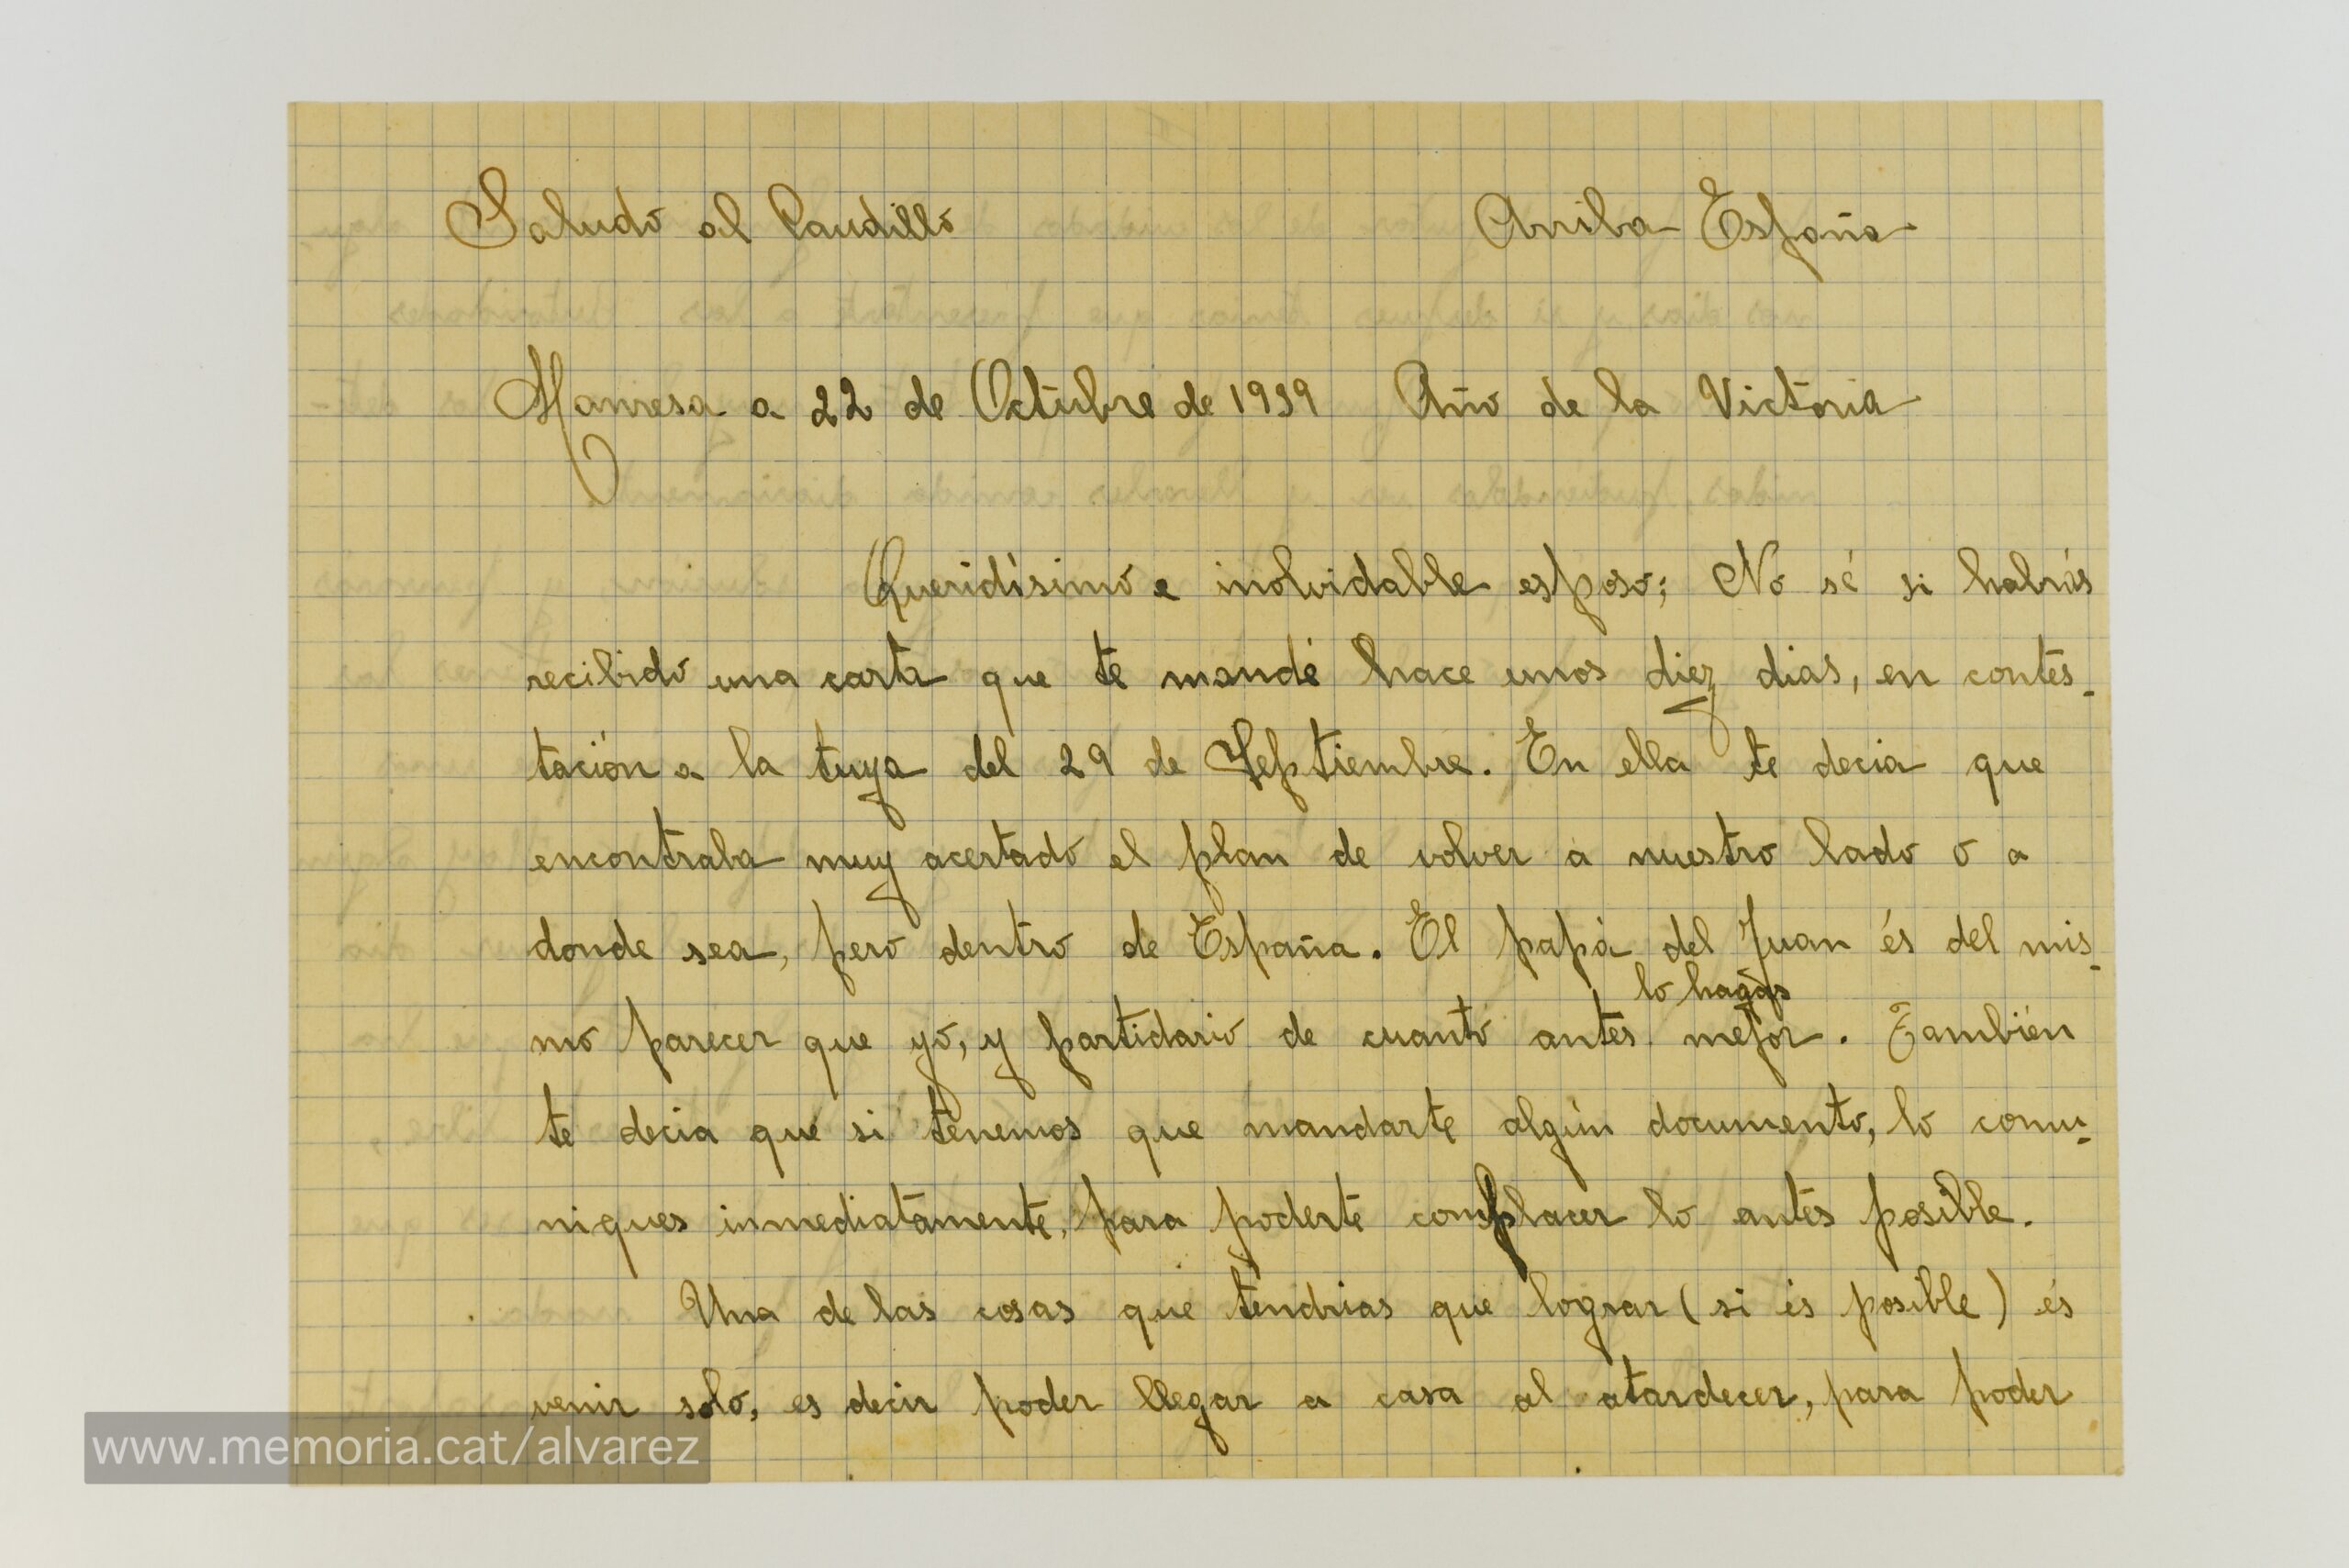 Saludo al Caudillo Arriba España
Manresa a 22 de Octubre de 1939 Año de la Victoria
Queridísimo e inolvidable esposo; No sé si habrás
recibido una carta que te mandé hace unos diez dias, en contes-
tación a la tuya del 29 de Septiembre. En ella te decia que
encontraba muy acertado el plan de volver a nuestro lado o a
donde sea, pero dentro de España. El papá del Juan és del mis-
lo hagas
mo parecer que yo, y partidario de cuanto antes mejor. También
te decia que si tenemos que mandarte algún documento, lo comu-
niques inmediatamente, para poderte complacer lo antes posible.
Una de las cosas que tendrias que lograr (si és posible) és
venir solo, es decir poder llegar a casa al atardecer, para poder
www.memoria.cat/alvarez